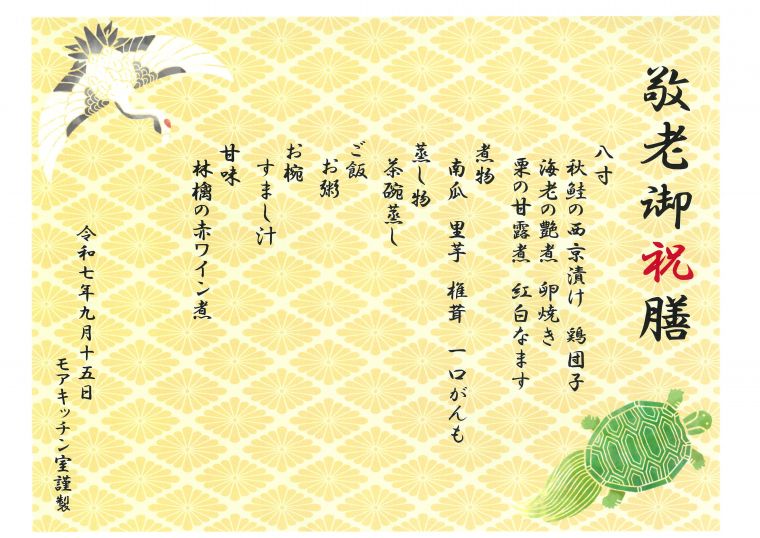 敬老御祝膳
八寸
秋鮭の西京漬け 鶏団子
海老の艶煮 卵焼き
栗の甘露煮 紅白なます
煮物
南瓜 里芋 椎茸 一口がんも
蒸し物
茶碗蒸し
ご飯
お粥
お椀
すまし汁
甘味
林檎の赤ワイン煮
令和七年九月十五日
モアキッチン室謹製